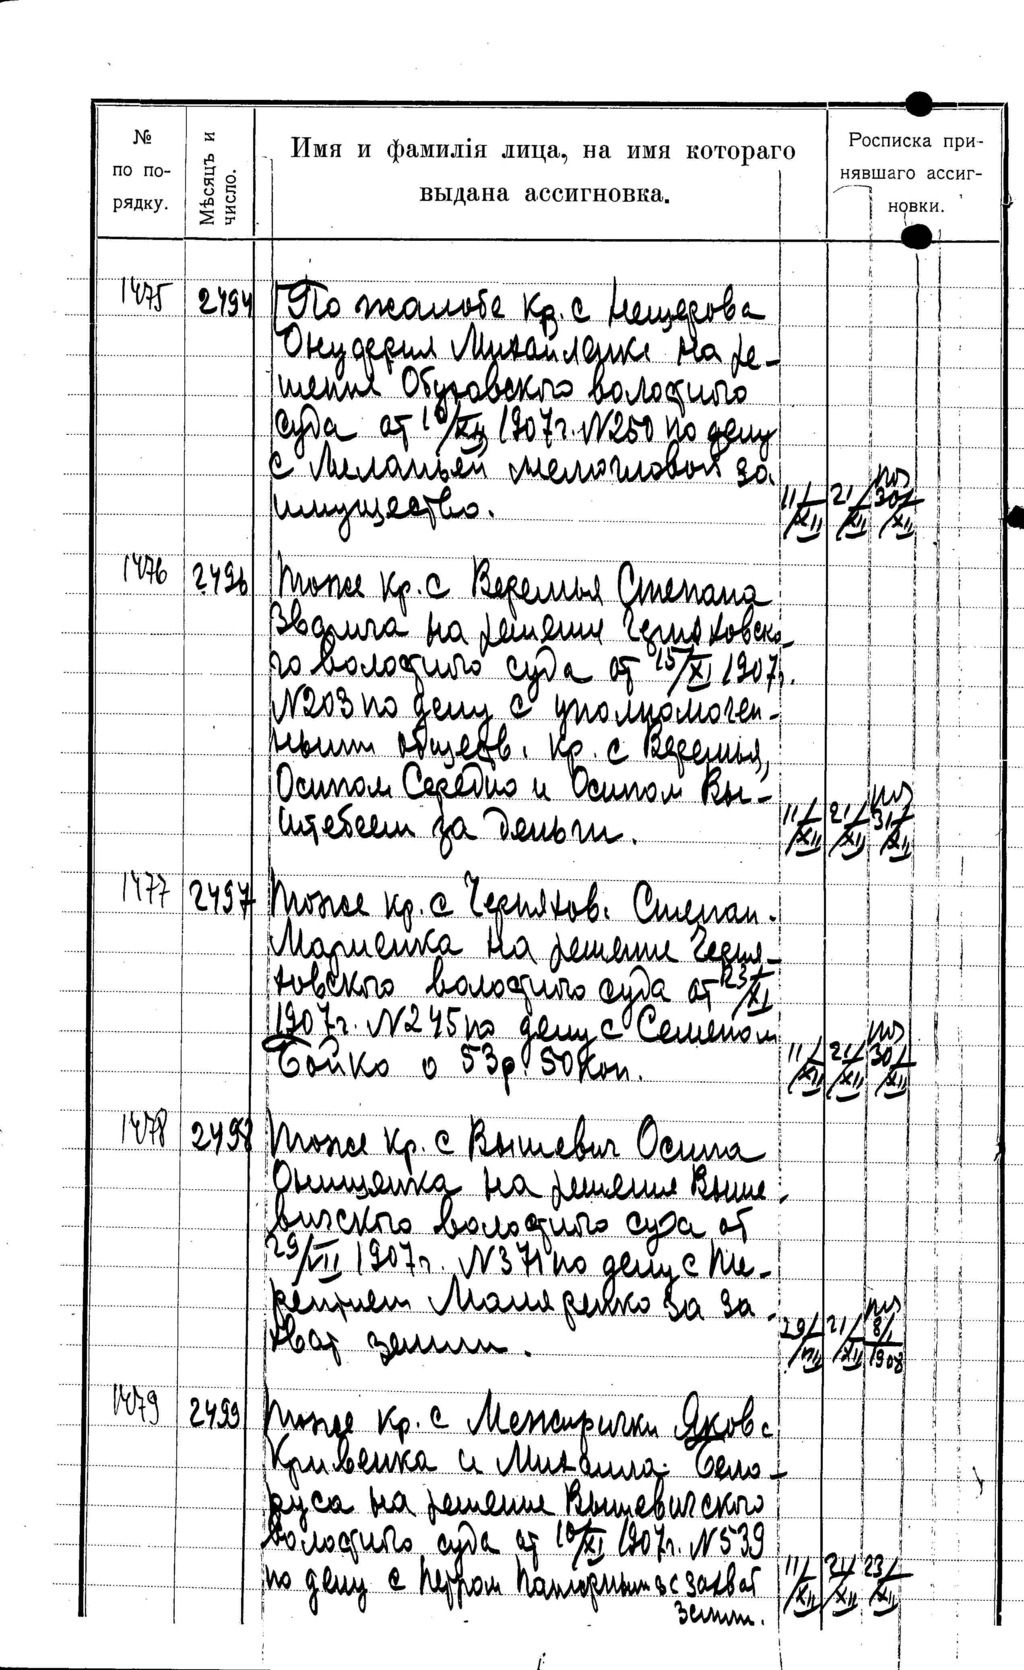 № по порядку.
Мѣсяцъ и число.
Имя и фамилія лица, на имя котораго
выдана ассигновка.
Росписка принявшаго ассигновки.
1475 2494 По жалобе кр. с Нещерова
Онуфрия Михайленко на ре-
шение Обуховского волостного
суда от 10/XII 1907г. N250 по делу
с Меланьей за
имущество.
11/XII 21/XII 30/XII
1476 2496 Тоже кр. с Веремья Степана
на решение Черняховско-
го волостного суда от 15/XI 1907г.
N203 по делу с уполномочен-
ными обществ. кр. с Веремья,
Осипом Середно и Осипом Вы-
за деньги.
11/XII 21/XII 31/XII
1477 2497 Тоже кр. с Черняхов. Степан.
Мариенка на решение Черня-
ховского волостного суда от 23/XI
1907г. N245 по делу с Семеном
Бойко о 53р. 50 коп.
11/XII 21/XII 30/XII
1478 2498 Тоже кр. с Вышевич Осипа
Онищенка на решение Выше-
вичского волостного суда от
29/VII 1907г. N371 по делу с Те-
рентием Маляренко за за-
хват земли.
21/XII 8/I 1908
1479 2499 Тоже кр. с Межирички Якова
Кривенка и Михаила Бело-
руса на решение Вышевичского
волостного суда от 10/XI 1907г. N539
по делу с Петром за захват
земли.
11/XII 21/XII 23/XII